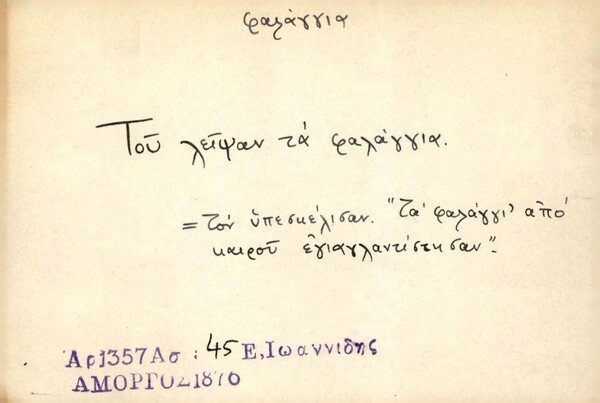 φαλάγγια
Τοῦ λεῖψαν τά φαλάγγια.
= τόν ὑπεσκέλισαν. "Τά φαλάγγι' ἀπό
καιροῦ ἐγιαγλαντίστησαν".
Ἀρ1357Ασ : 45 Ε,Ιωαννιδης
ΑΜΟΡΓΟΣ1876